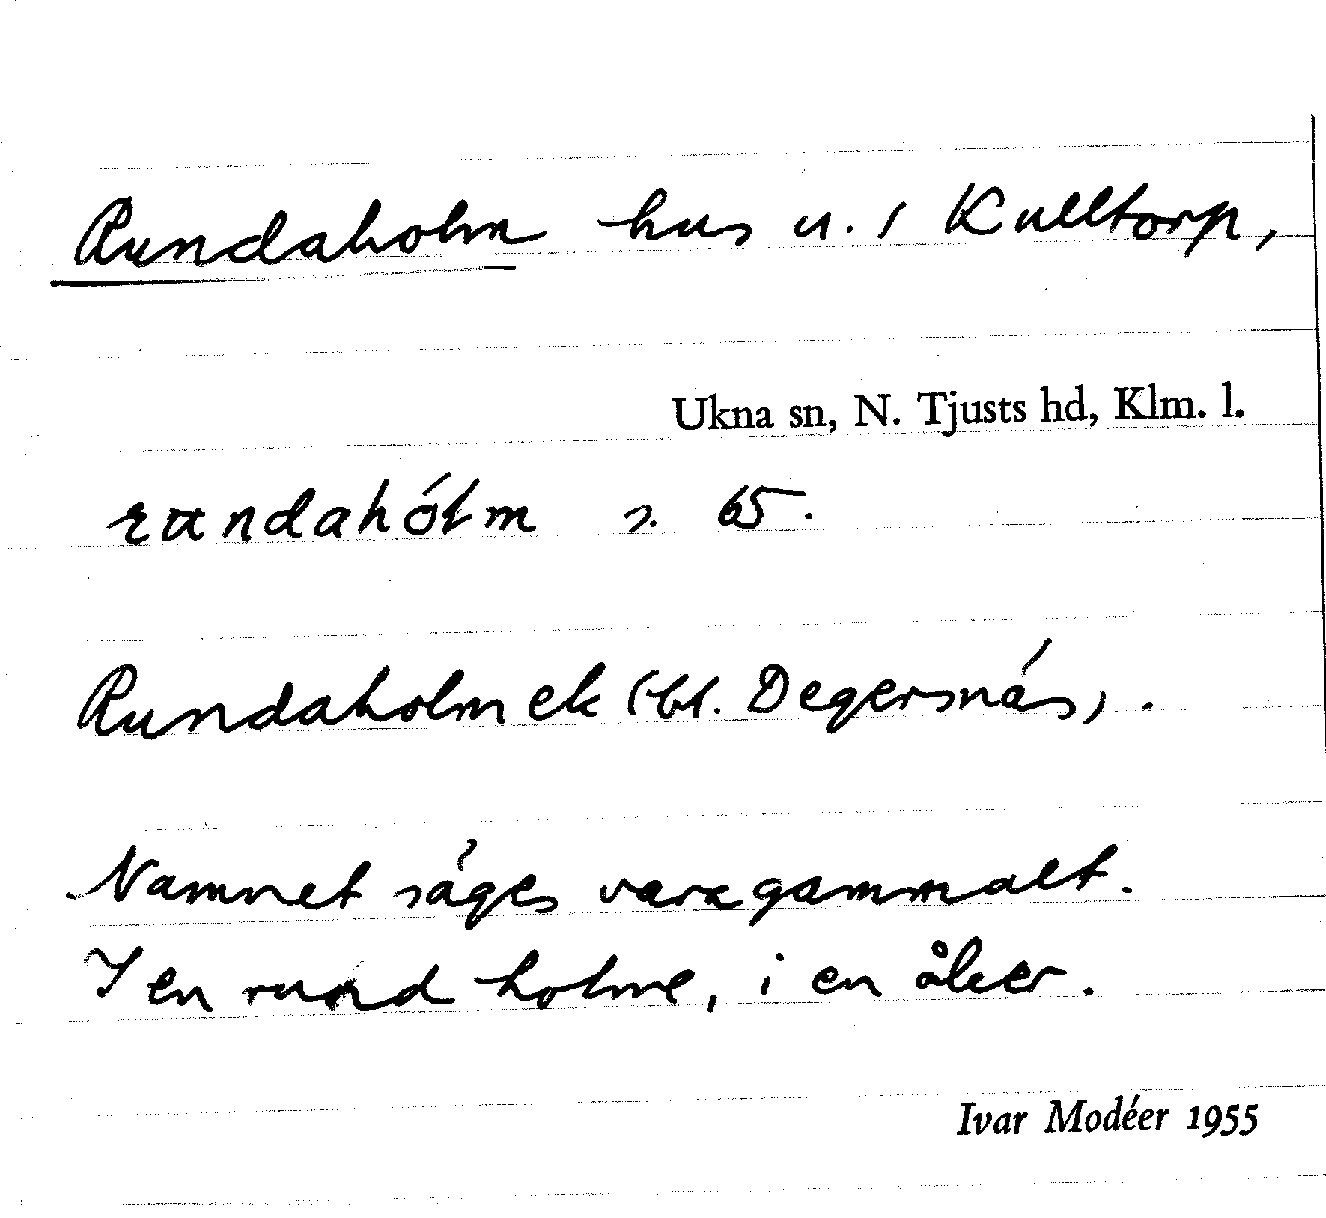 Rundaholm hus u. 1 Kulltorp,
Ukna sn, N. Tjusts hd, Klm. l.
rundahólm s. 65.
Rundaholm ek (bl. Degersnäs).
Namnet säges vara gammalt.
I en rund holme, i en åker.
Ivar Modéer 1955